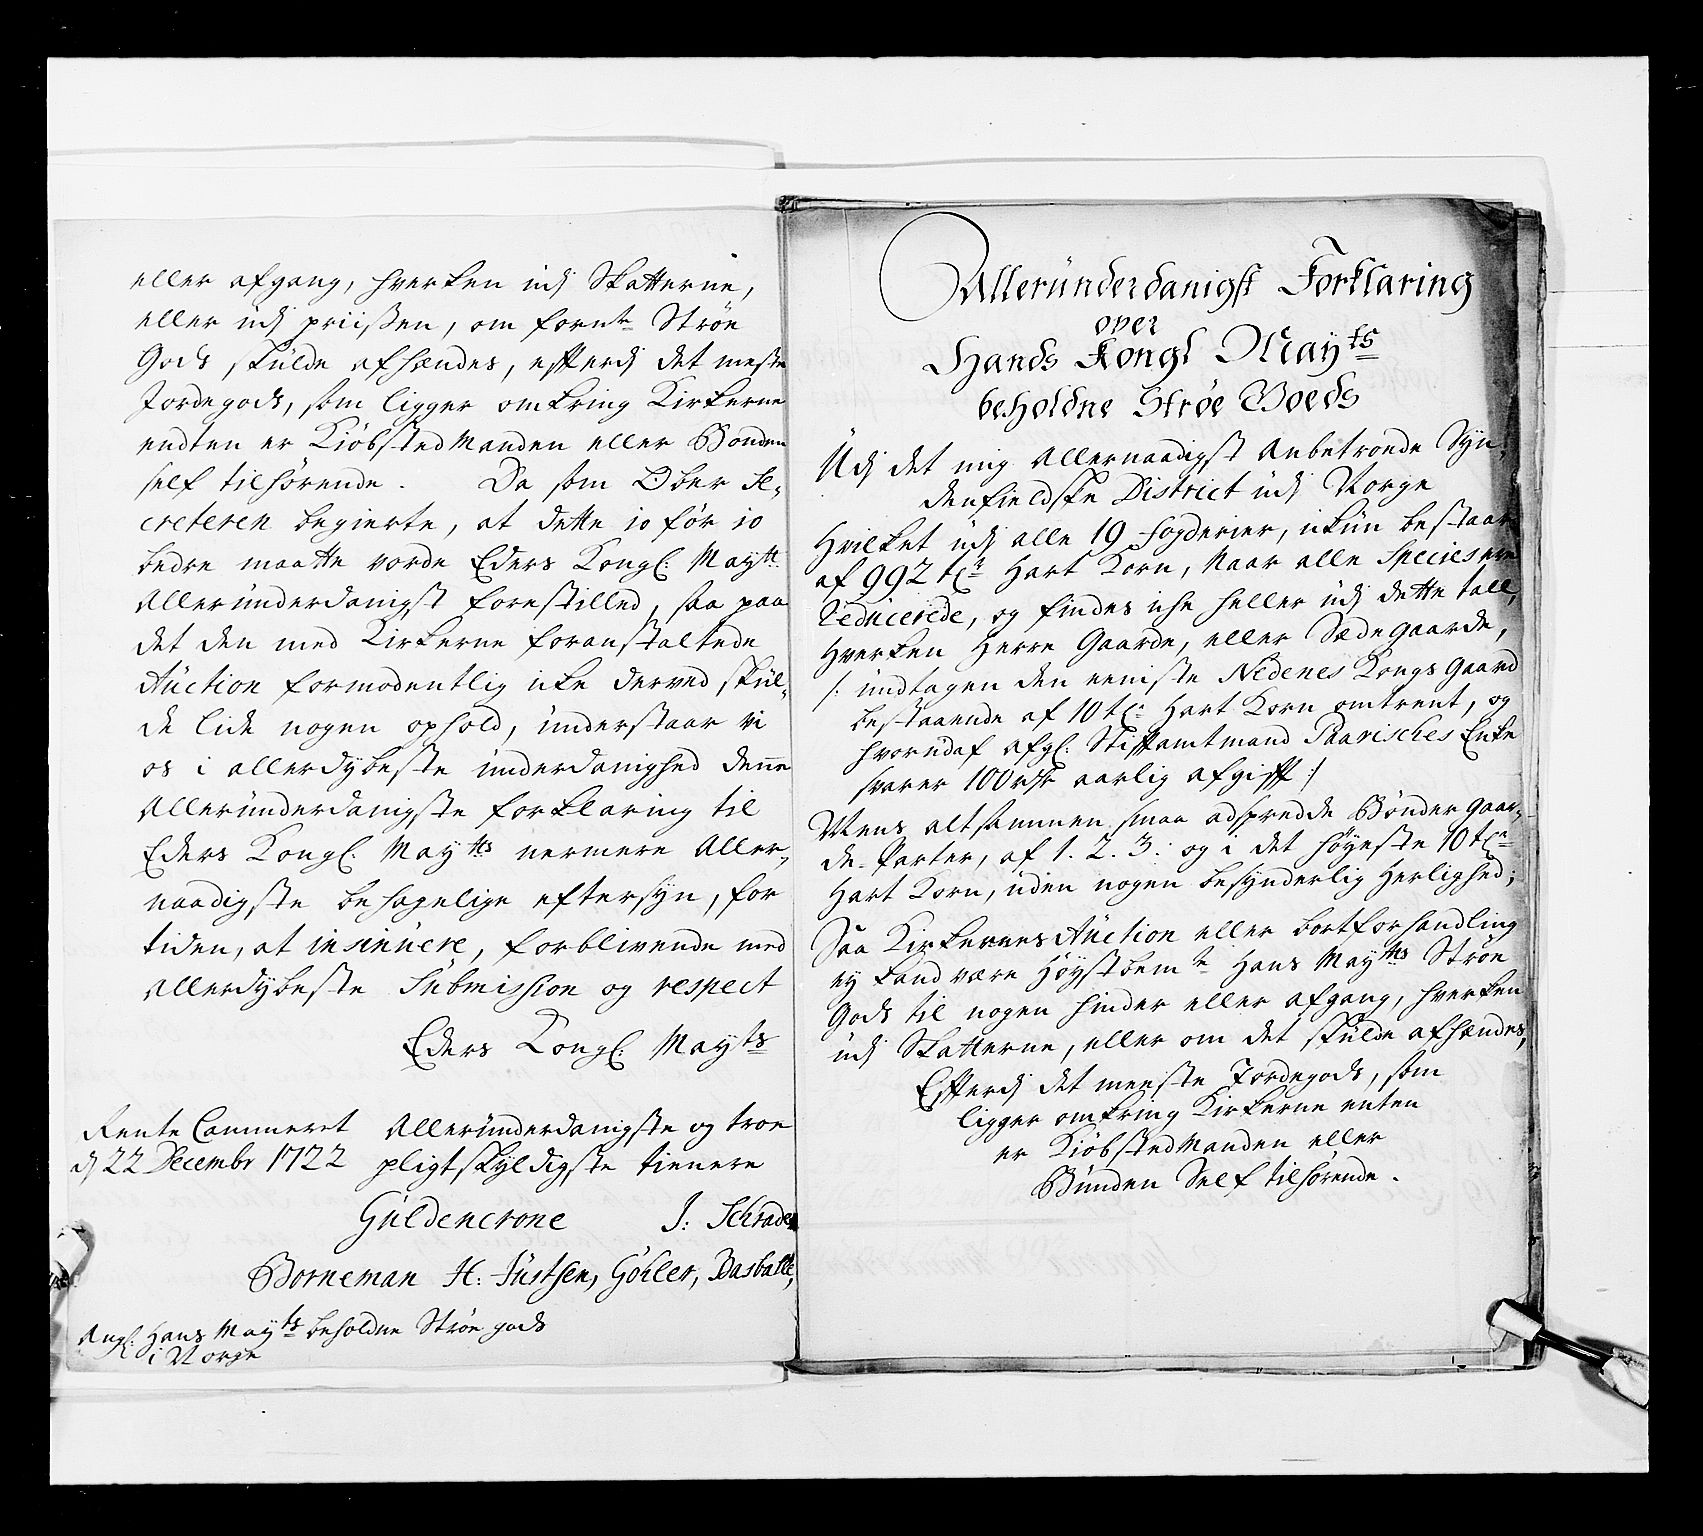 eller afgang, hverken udj Skatterne,
eller udj priißen, om fornte Strøe
Gods skulde afhændes, efterdj det meste
Jordegods, som ligger omkring Kirkerne
endten er Kiøbstedmanden eller Bonden
self tilhørende. Da som Ober Se,
creteren begierte, at dette jo før jo
bedre maatte vorde Eders Kongl: Maytt
Alleründerdanigst forestilled, saa paa
det den med Kirkerne foranstaltede
Auction formodentlig icke derved skul,
de lide nogen ophold, understaar vi
os i allerdybeste underdanighed denne
Allerunderdanigste forklaring til
Eders Kongl: Mayts nermere Aller,
naadigste behagelige eftersyn, for
tiden, at insinuere, forblivende med
allerdybeste Submission og respect
Eders Kongl: Mayts
Rente Cammeret Allerunderdanigste og troe
dj 22 Decembr 1722 pligtskyldigste tienere
Güldencrone J: Schrader
Borneman H: Justsen, Göhler, Basballe,
Angl: Hans Mayts beholdne Strøe gods
i Norge
Alleründerdanigst Forklaring
over
Hands Kongl Mayts
beholdne Strøe Goeds
Udj det mig Allernaadigst Anbetroede Syn,
denfieldske District udj Norge
Hvilket udj alle 19 fogderier, ickun bestaar
af 992 tr Hart Korn, Naar alle Species ere
reducerede, og findes iche heller udj dette tall,
Hverken Herre Gaarde, eller Sædegaarde,
/: undtagen den eeniste Nedenes Kongs Gaard
bestaaende af 10 tr Hart Korn omtrent, og
hvorudaf afgl: Stiftamtmand Paarisches Enke
svarer 100 rdr aarlig afgifft :/
Mens altsammen smaa adspredde Bønder Gaar,
de-Parter, af 1. 2. 3: og i det høyeste 10 tr
Hart Korn, uden nogen besynderlig Herlighed;
Saa Kirkernes Auction eller bortforhandling
ey kand være Høystbemte Hans Mayts Strøe
Gods til nogen hinder eller afgang, hverken
udj Skatterne, eller om det skulde afhændes,
Efterdj det meeste Jordegods, som
ligger omkring Kirkerne enten
er Kiøbstedmanden eller
Bunden Self tilhørende.